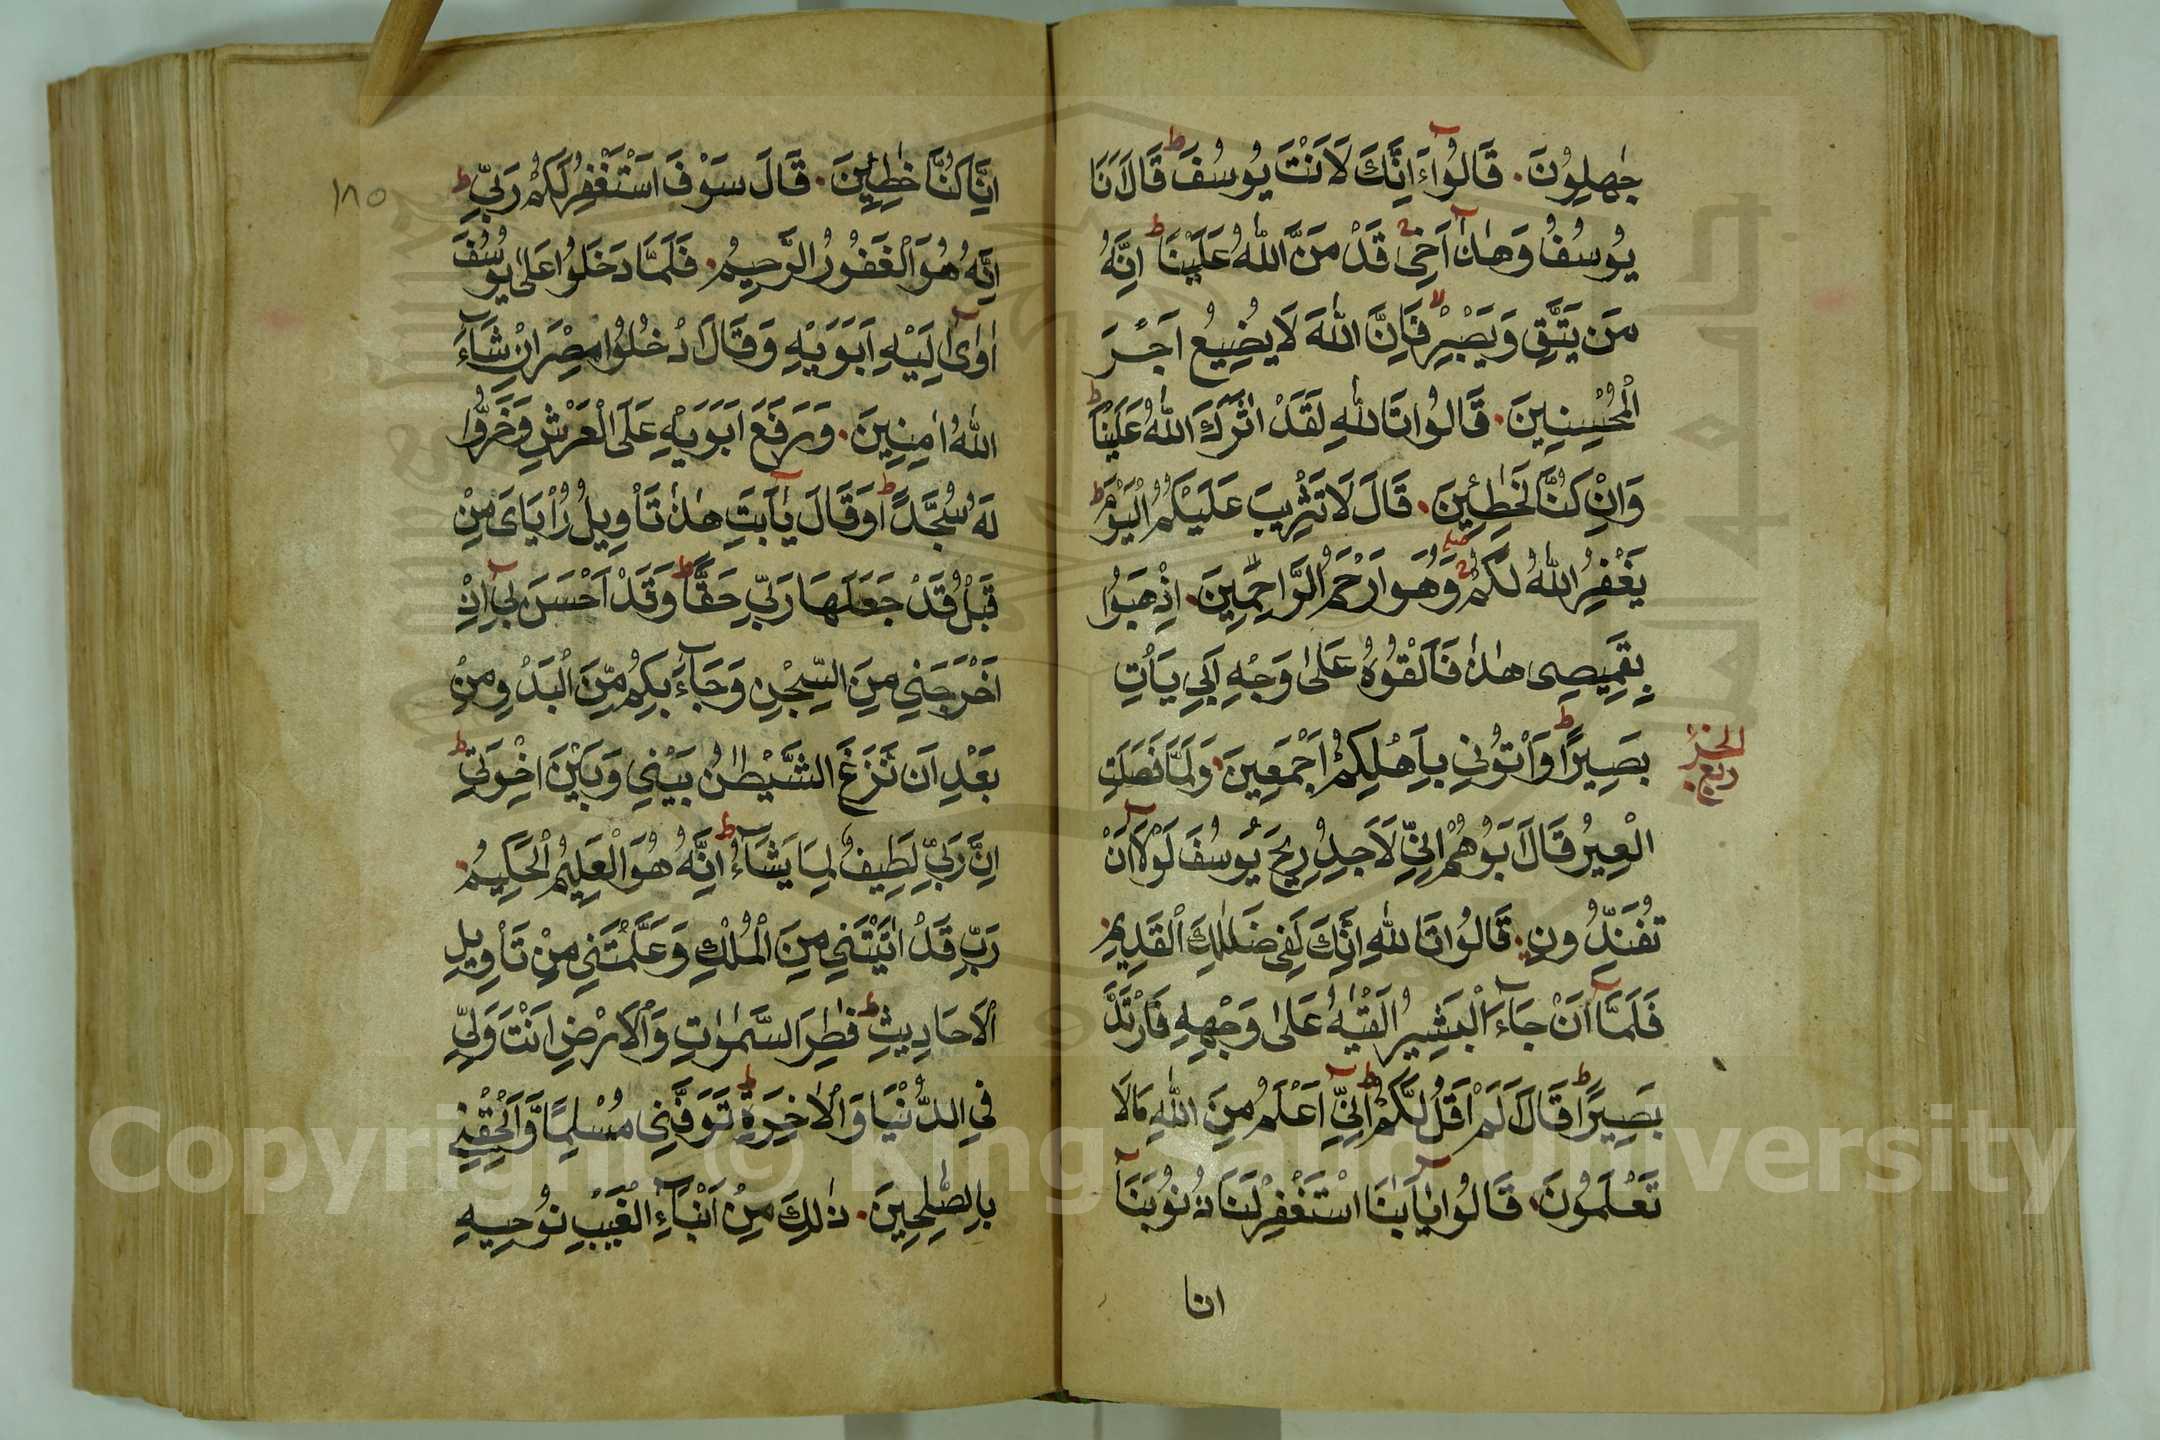 جٰهِلُونَ. قَالُوٓا ءَاِنَّكَ لَاَنْتَ يُوسُفُ ط قَالَ اَنَا
يُوسُفُ وَهٰذَٓا اَخِى قَدْ مَنَّ اللّٰهُ عَلَيْنَا ط اِنَّهُ
مَن يَتَّقِ وَيَصْبِرْ لا فَاِنَّ اللّٰهَ لَا يُضِيعُ اَجْرَ
الْمُحْسِنِينَ. قَالُوا تَاللّٰهِ لَقَدْ اٰثَرَكَ اللّٰهُ عَلَيْنَا ط
وَاِنْ كُنَّا لَخٰطِئِينَ. قَالَ لَا تَثْرِيبَ عَلَيْكُمُ الْيَوْمَ ط
يَغْفِرُ اللّٰهُ لَكُمْ صلے وَهُوَ اَرْحَمُ الرَّاحِمِينَ. اِذْهَبُوا
بِقَمِيصِى هٰذَا فَاَلْقُوهُ عَلٰى وَجْهِ اَبِي يَأْتِ
بَصِيرًا ط وَأْتُونِي بِاَهْلِكُمْ اَجْمَعِينَ. وَلَمَّا فَصَلَتِ
الحزب
ربع
الْعِيرُ قَالَ اَبُوهُمْ اِنِّي لَاَجِدُ رِيحَ يُوسُفَ لَوْلَٓا اَنْ
تُفَنِّدُونِ. قَالُوا تَاللّٰهِ اِنَّكَ لَفِى ضَلٰلِكَ الْقَدِيمِ.
فَلَمَّٓا اَنْ جَٓاءَ الْبَشِيرُ اَلْقٰيهُ عَلٰى وَجْهِهِ فَارْتَدَّ
بَصِيرًا ط قَالَ اَلَمْ اَقُلْ لَكُمْ ط اِنِّٓي اَعْلَمُ مِنَ اللّٰهِ مَالَا
تَعْلَمُونَ. قَالُوا يَٓا اَبَانَا اسْتَغْفِرْ لَنَا ذُنُوبَنَٓا
انا
١٨٥
اِنَّا كُنَّا خٰطِئِينَ. قَالَ سَوْفَ اَسْتَغْفِرُ لَكُمْ رَبِّي ط
اِنَّهُ هُوَ الْغَفُورُ الرَّحِيمُ. فَلَمَّا دَخَلُوا عَلٰى يُوسُفَ
اٰوٰٓى اِلَيْهِ اَبَوَيْهِ وَقَالَ ادْخُلُوا مِصْرَ اِنْ شَٓاءَ
اللّٰهُ اٰمِنِينَ. وَرَفَعَ اَبَوَيْهِ عَلَى الْعَرْشِ وَخَرُّوا
لَهُ سُجَّدًا ط وَقَالَ يَٓا اَبَتِ هٰذَا تَأْوِيلُ رُءْيَاىَ مِنْ
قَبْلُ قَدْ جَعَلَهَا رَبِّي حَقًّا ط وَقَدْ اَحْسَنَ بِٓي اِذْ
اَخْرَجَنِي مِنَ السِّجْنِ وَجَٓاءَ بِكُمْ مِنَ الْبَدْوِ مِنْ
بَعْدِ اَن نَزَغَ الشَّيْطٰنُ بَيْنِي وَبَيْنَ اِخْوَتِي ط
اِنَّ رَبِّي لَطِيفٌ لِمَا يَشَٓاءُ ط اِنَّهُ هُوَ الْعَلِيمُ الْحَكِيمُ.
رَبِّ قَدْ اٰتَيْتَنِي مِنَ الْمُلْكِ وَعَلَّمْتَنِي مِنْ تَأْوِيلِ
الْاَحَادِيثِ ط فَاطِرَ السَّمٰوٰتِ وَالْاَرْضِ اَنْتَ وَلِيِّ
فِي الدُّنْيَا وَالْاٰخِرَةِ ط تَوَفَّنِى مُسْلِمًا وَاَلْحِقْنِي
بِالصّٰلِحِينَ. ذٰلِكَ مِنْ اَنْبَٓاءِ الْغَيْبِ نُوحِيهِ
Copyright © King Saud University